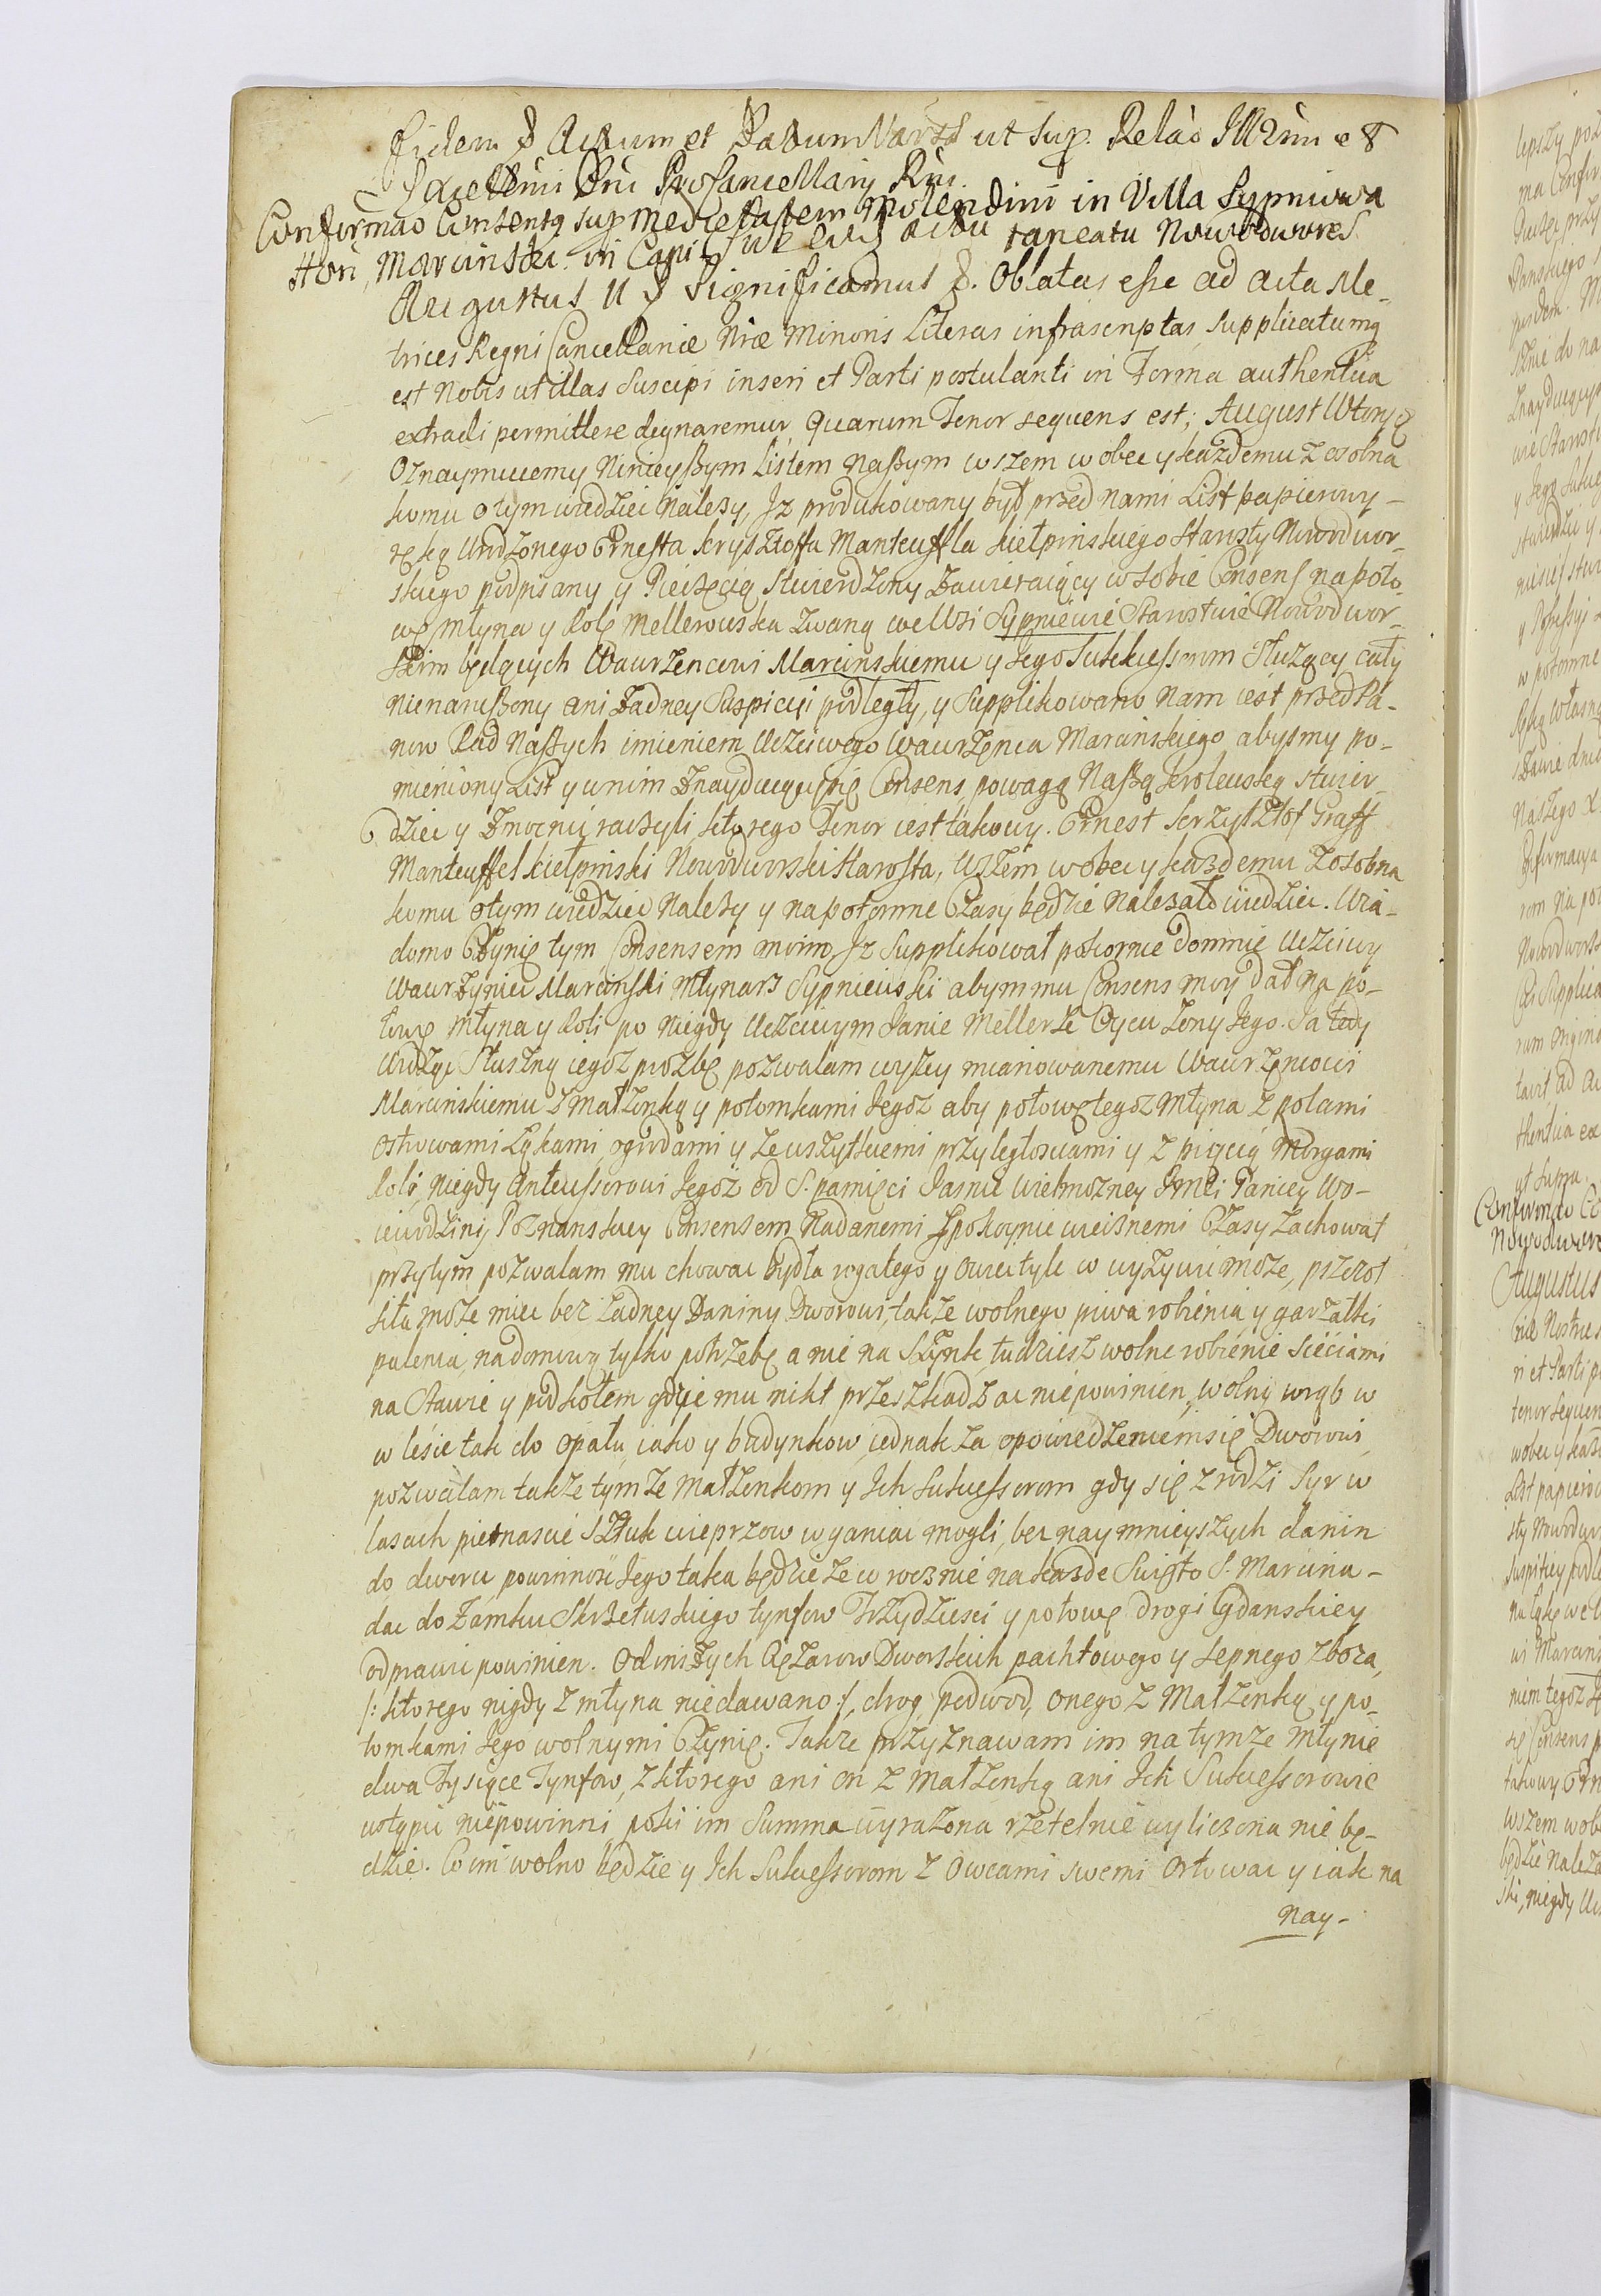 Fidem & Actum et Datum Vars: ut sup. Relao Illrmi et
Excellmi Dni ProCancellarij Rni.
Confirmao Consens9 sup medietatem Molendini in Villa Sypniewa
Hon. Marcinski in Capi
taneatu Nowoduoren
Augustus II & Significamus &. Oblatas esse ad acta Me-
trices Regni Cancellariæ Nræ Minoris Literas infrascriptas, supplicatumq
est Nobis ut illas Suscipi inseri et Parti postulanti in Forma authentica
extradi permittere dignaremur, quarum Tenor sequens est; August Wtory &
Oznaymuiemy Ninieyszym Listem Naszym wszem wobec y każdemu z osobna
komu o tym wiedziec Należy, Iz produkowany był przed nami List papierowy -
ręką Urodzonego Ernesta Krysztoffa Manteuffla Kiełpinskiego Starosty Nowodwor-
skiego podpisany y Pieczęcią Stwierdzony Zawieraiący w sobie Consens na poło-
wę Młyna y Rolę Mellerowska zwaną we Wsi Sypniewie Starostwie Nowodwor-
skim będących Wawrzencowi Marcinskiemu y Jego Sukcessorom Służący cały
nienaruszony ani Żadney Suspicyi podległy, y Supplikowano Nam iest przed Pa-
now Rad Naszych imieniem Uczciwego Wawrzenca Marcinskiego abysmy po-
mieniony List y w nim Znayduiący się Consens, powagą Naszą Krolewską stwier-
dziec y Zmocnić raczyli ktorego Tenor iest takowy. Ernest Krzysztof Graff
Manteuffel Kiełpinski Nowodworski Starosta, Wszem wobec y każdemu z osobna
komu o tym wiedziec Należy y napotomne Czasy będzie Należało wiedziec. Wia-
domo Czynię tym Consensem moim, Iz Supplikował pokornie do mnie Uczciwy
Wawrzyniec Marcinski Młynarz Sypniewski abym mu Consens moy dał na po-
łowę Młyna y Roli po Niegdy Uczciwym Janie Mellerze Oycu Żony Jego. Ja tedy
Widząc Słuszną iegoz prozbę pozwalam wyżey mianowanemu Wawrzencowi
Marcinskiemu z Małzenką y potomkami Jegoz aby połowę tegoz Młyna z polami
ostrowami Łąkami ogrodami y ze wszytkiemi przyległosciami y z pięcią Morgami
Roli, Niegdy Antecessorowi Jegoz od S. pamięci Jasnie Wielmozney Jmci Paniey Wo-
iewodziny Poznanskiey Consensem Nadanemi Spokoynie wiecznemi Czasy zachował
przytym pozwalam mu chowac bydła rogatego y owiec tyle w wyżywi może, pszczoł
siła może miec bez żadney Daniny Dworowi, także wolnego piwa robienia y garzałki
palenia, na domową tylko potrzebę a nie na Szynk tudziesz wolne robienie Sieciami
na Stawie y pod kołem gdzie mu nikt przeszkadzac niepowinien, wolny wrąb w
w lesie tak do opału iako y budynkow, iednak za opowiedzeniem się Dworowi,
pozwalam także tymze Małzenkom y Ich Sukcessorom gdy się zrodzi Syr w
lasach pietnascie Sztuk wieprzow wganiac mogli, bez naymnieyszych danin
do dworu powinnosc Jego taka będzie ze w rocznie na każde Swięto S. Marcina -
dac do Zamku Skrzetuskiego tynfow Trzydziesci y połowę drogi Gdanskiey
odprawic powinien. Od inszych Cięzarow Dworskich pachtowego y sepnego zboża,
/: ktorego nigdy z młyna niedawano :/, drog, podwod, onego z Małzenką y po-
tomkami Jego wolnymi Czynię. Także przyznawam im na tymze Młynie
dwa Tysiące Tynfow, z ktorego ani on z Małzenką ani Ich Sukcessorowie
ustąpic niepowinni poki im Summa wyrażona rzetelnie wyliczona nie bę-
dzie. Co im wolno będzie y Ich Sukcessorom z Owcami swemi Orłowac y iak na
nay-